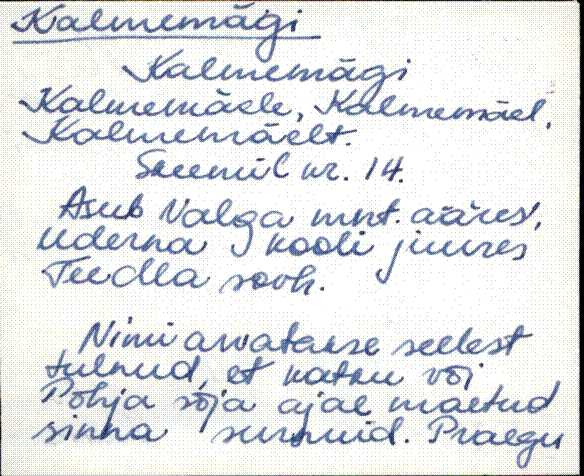 Kalmemägi
Kalmemägi
Kalmemäele, Kalmemäel,
Kalmemäelt.
Skeemil nr. 14.
Asub Valga mnt. ääres,
Uderna kooli juures
Teedla sovh.
Nimi arvatakse sellest
tulnud, et katku või
Põhja sõja ajal maetud
sinna surnuid. Praegu